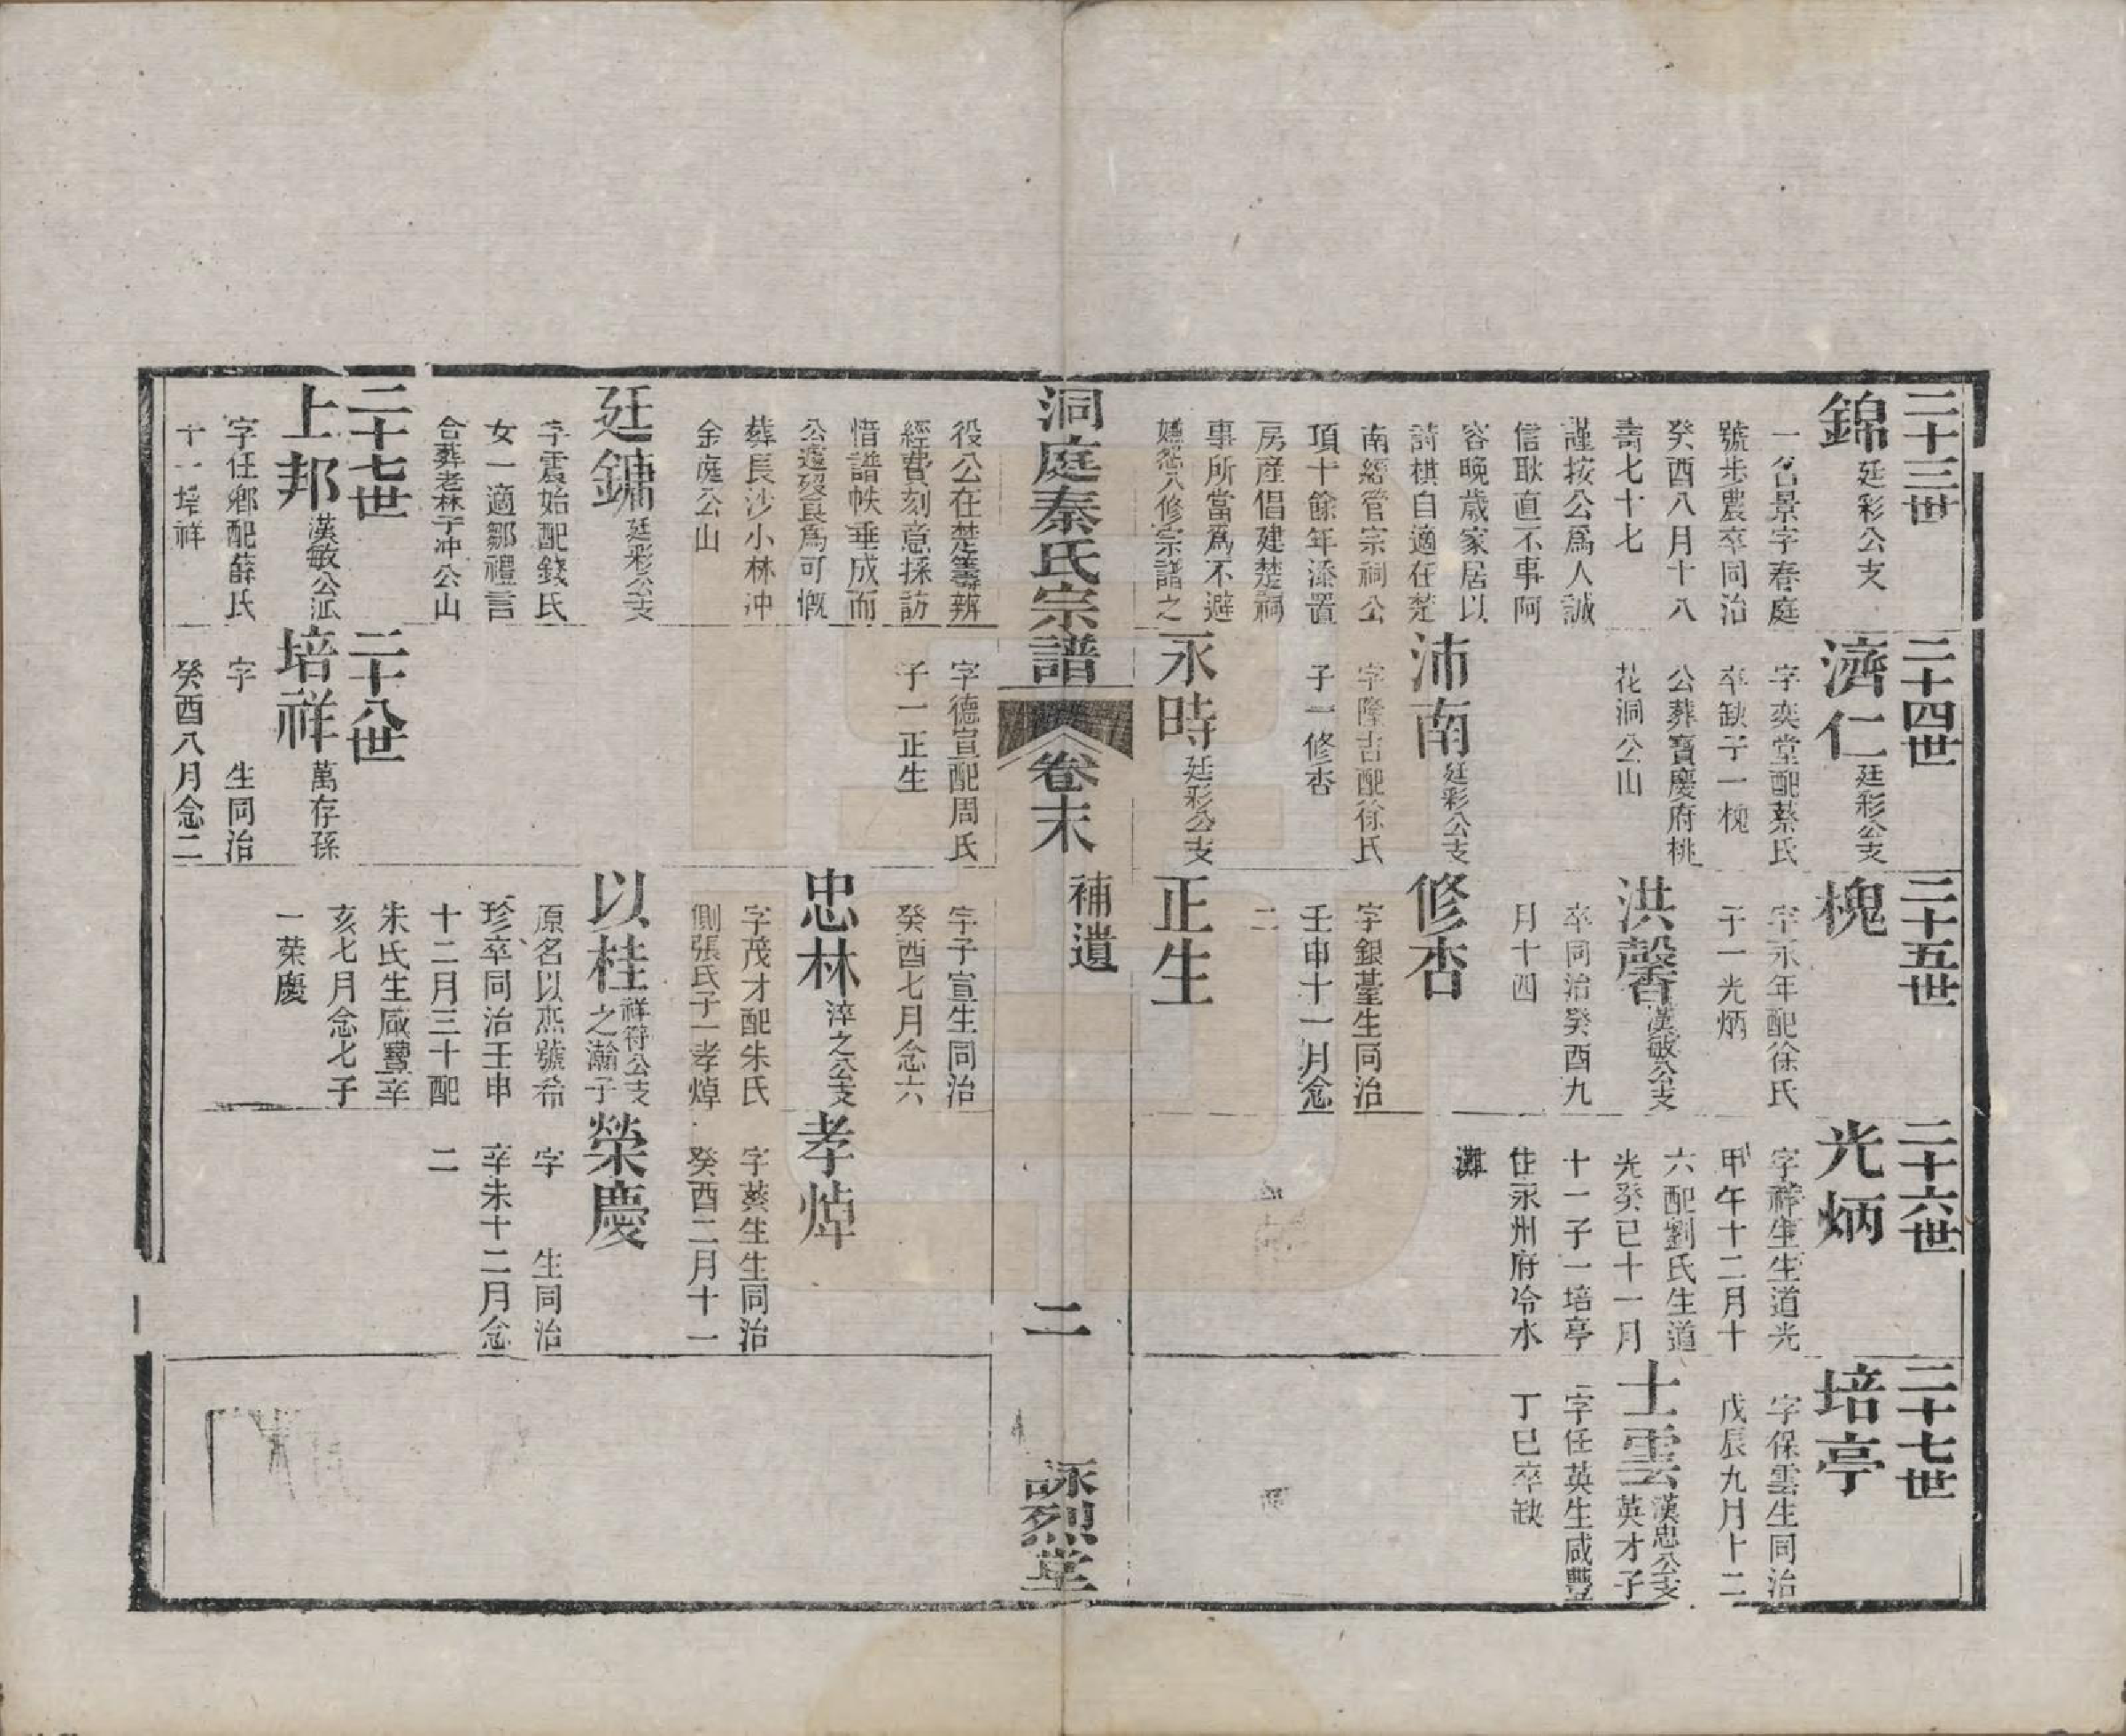 二十三世
錦 廷彩公支
一名景字春庭
號步農卒同治
癸酉八月十八
壽七十七
謹按公爲人誠
信耿直不事阿
容晚歲家居以
詩棋自適在楚
南經管宗祠公
項十餘年添置
房産倡建楚祠
事所當爲不避
嫌怨八修宗譜之
二十四世
濟仁 廷彩公支
字奕堂配蔡氏
卒缺子一槐
公葬寶慶府桃
花洞公山
沛南 廷彩公支
字隆吉配徐氏
子一修杏
永時 廷彩公支
二十五世
槐
字永年配徐氏
子一光炳
洪馨 漢敏公支
卒同治癸酉九
月十四
修杏
字銀臺生同治
壬申十一月念
二
正生
二十六世
光炳
字祥生生道光
甲午十二月十
六配劉氏生道
光癸巳十一月
十一子一培亭
住永州府冷水
灘
二十七世
培亭
字保雲生同治
戊辰九月十二
士雲 漢忠公支
英才子
字任英生咸豐
丁巳卒缺
洞庭秦氏宗譜
卷末
補遺
二
詠烈堂
役公在楚籌辦
經費刻意採訪
惜譜帙垂成而
公遽歿良爲可慨
葬長沙小林冲
金庭公山
廷鏞 廷彩公支
字震始配錢氏
女一適鄒禮言
合葬老林子冲公山
字德宣配周氏
子一正生
字子宣生同治
癸酉七月念六
忠林 淬之公支
字茂才配朱氏
側張氏子一孝焯
以桂 祥符公支
之瀚子
原名以杰號希
珍卒同治壬申
十二月三十配
朱氏生咸豐辛
亥七月念七子
一榮慶
孝焯
字葵生生同治
癸酉二月十一
榮慶
字 生同治
辛未十二月念
二
二十七世
上邦 漢敏公派
字任鄉配薛氏
十一培祥
二十八世
培祥 萬存孫
字 生同治
癸酉八月念二